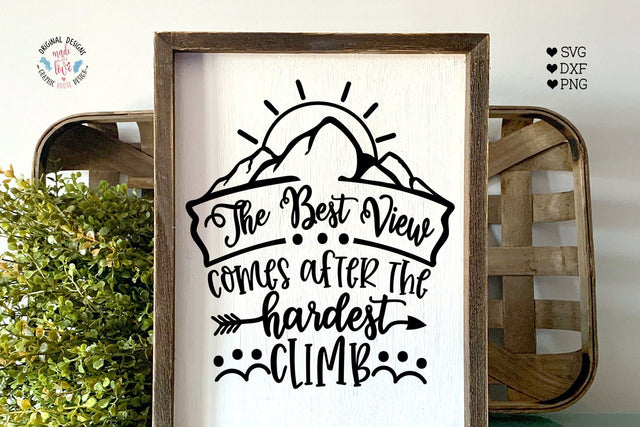 ORIGINAL DESIGNS
made
with
love
GRAPHIC HOUSE DESIGN
SVG
DXF
PNG
The Best View
COMES AFTER THE
hardest
CLIMB